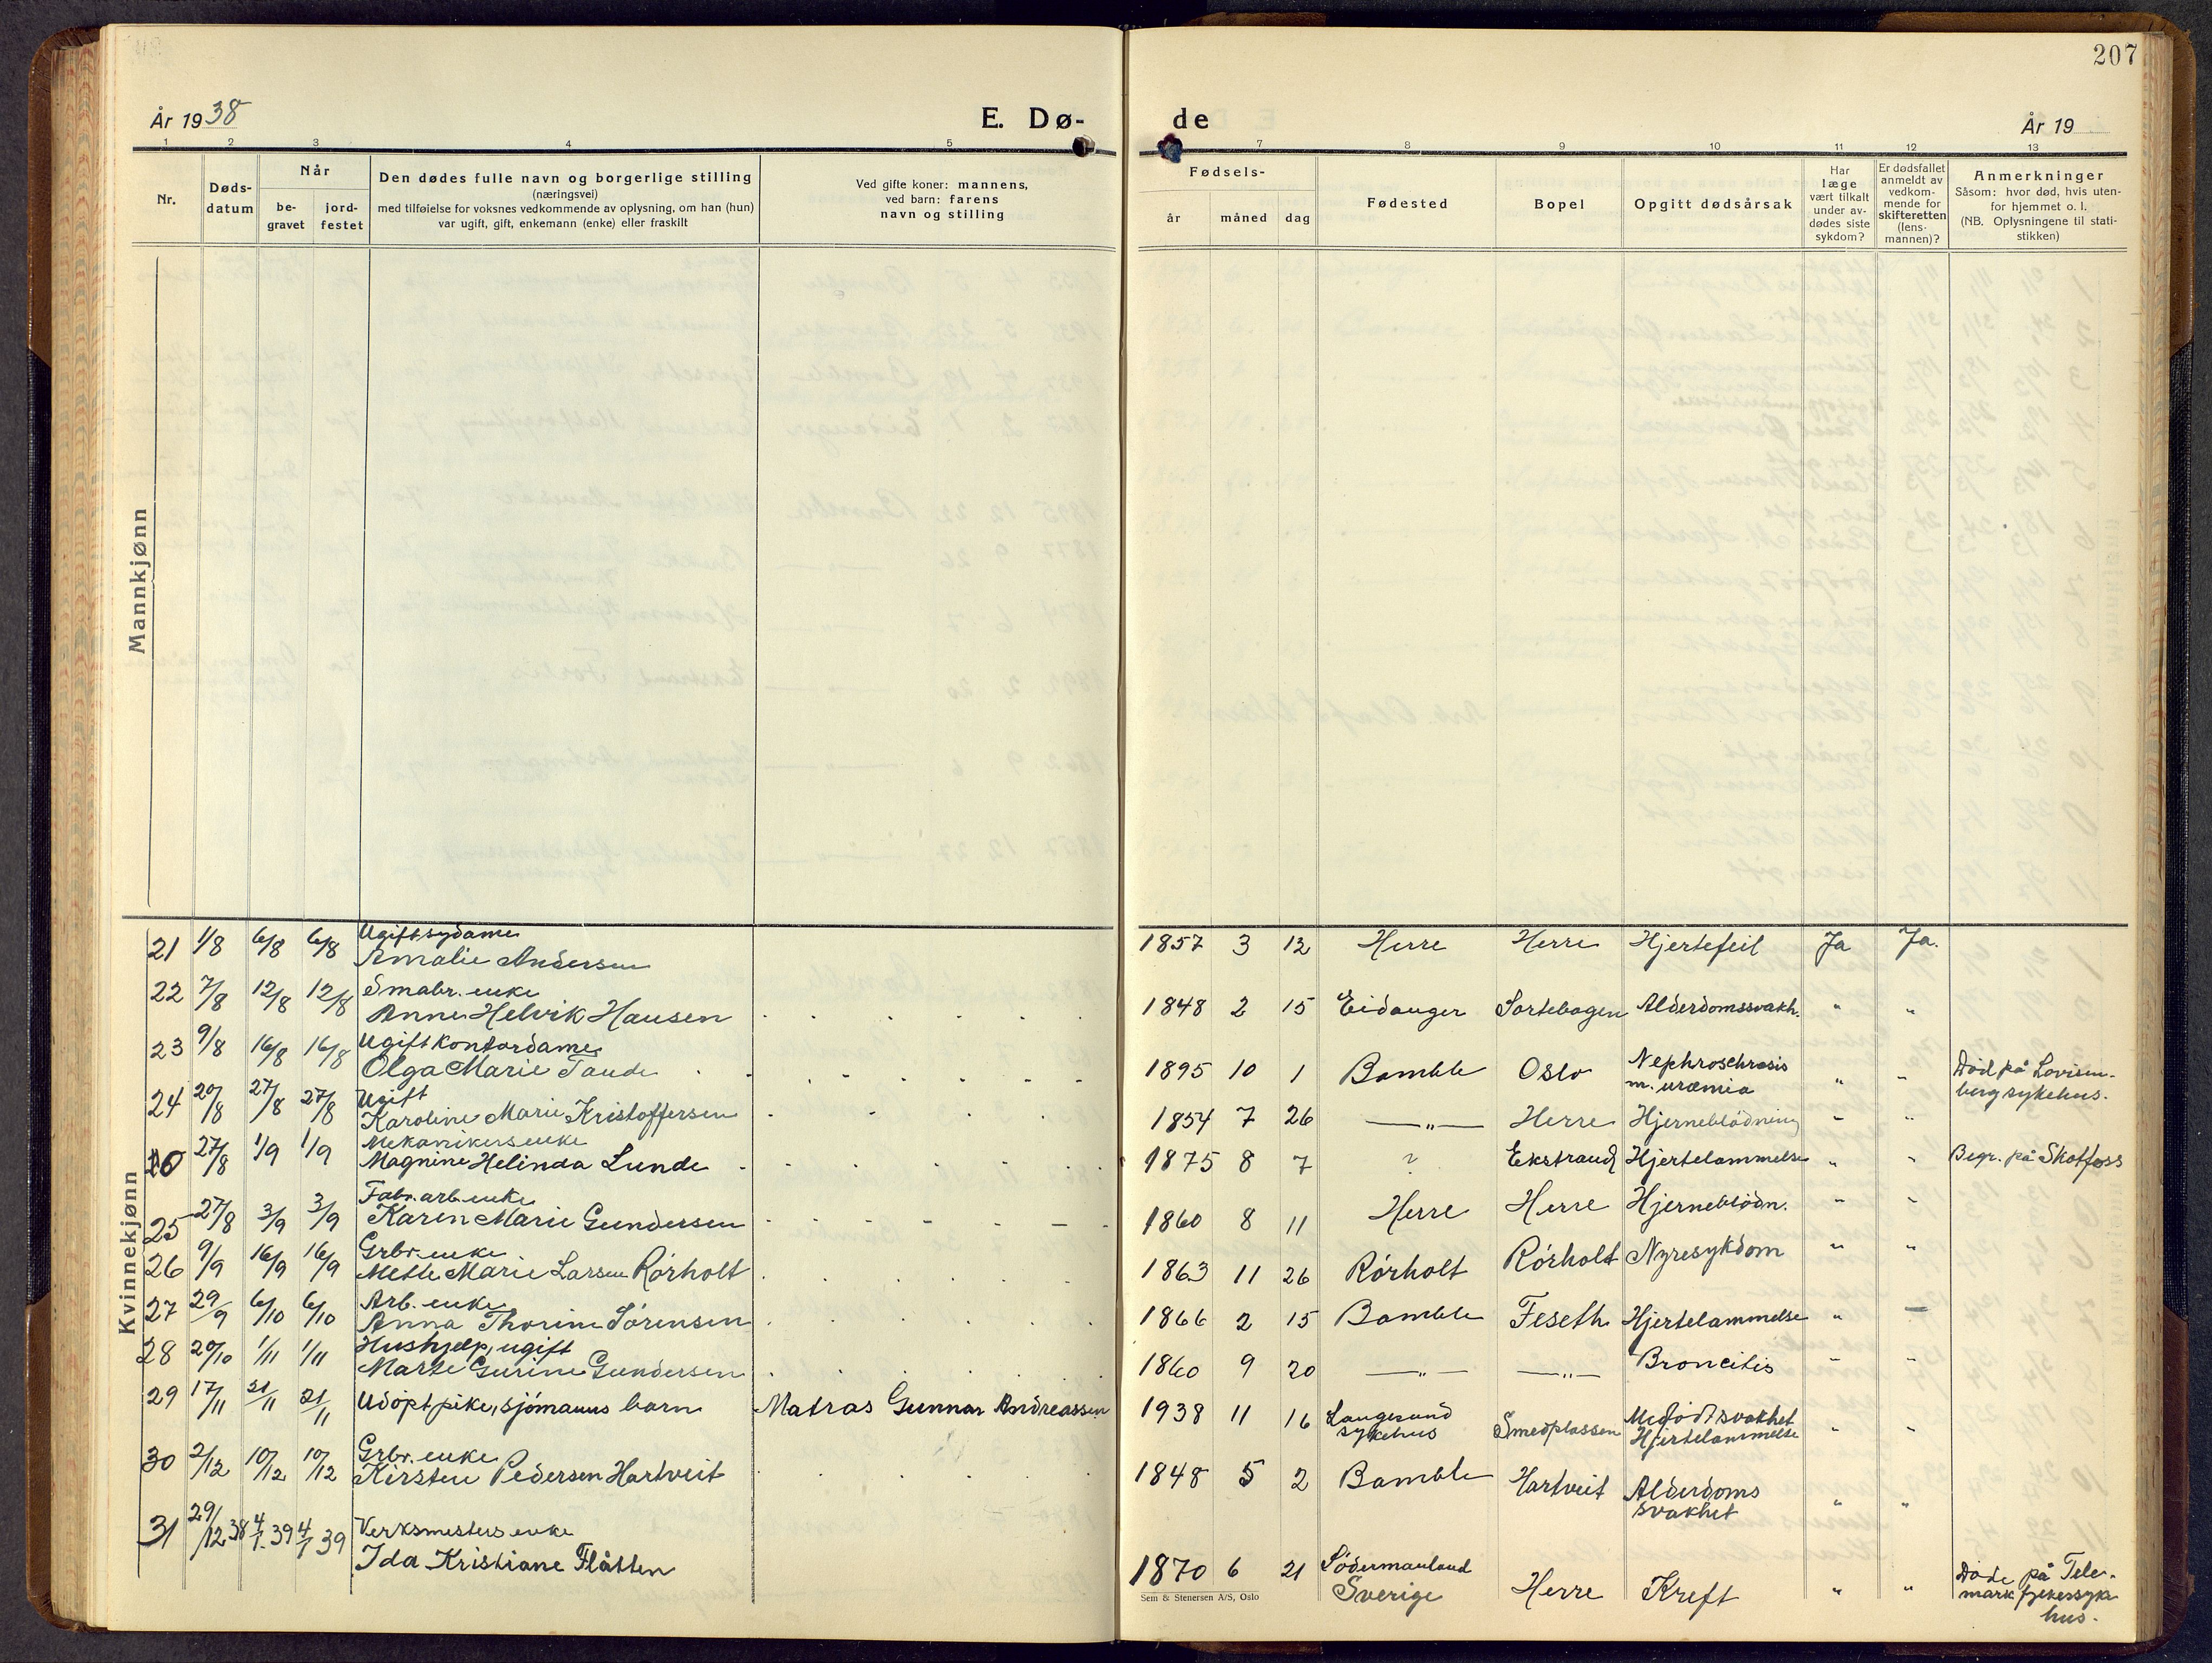 207
År 1938
E. Dø-
de
År 19
1 2 3 4 5
7 8 9 10 11 12 13
Nr.
Døds-
datum
Når
be-
gravet
jord-
festet
Den dødes fulle navn og borgerlige stilling
(næringsvei)
med tilføielse for voksnes vedkommende av oplysning, om han (hun)
var ugift, gift, enkemann (enke) eller fraskilt
Ved gifte koner: mannens,
ved barn: farens
navn og stilling
Fødsels-
år
måned
dag
Fødested
Bopel
Opgitt dødsårsak
Har
læge
vært tilkalt
under av-
dødes siste
sykdom?
Er dødsfallet
anmeldt av
vedkom-
mende for
skifteretten
(lens-
mannen)?
Anmerkninger
Såsom: hvor død, hvis uten-
for hjemmet o. l.
(NB. Oplysningene til stati-
stikken)
Mannkjønn
Kvinnekjønn
Ugift sydame
21 1/8 6/8 6/8 Amalie Andersen 1857 3 12 Herre Herre Hjertefeil Ja Ja.
Småbr. enke
22 7/8 12/8 12/8 Anne Helvik Hansen 1848 2 15 Eidanger Sortebogen Alderdomssvakh. " "
Ugift kontordame
23 9/8 16/8 16/8 Olga Marie Taude 1895 10 1 Bamble Oslo
m. uræmia " " Död på Lovisen-
berg sykehus.
Ugift
24 20/8 27/8 27/8 Karoline Marie Kristoffersen 1854 7 26 —"— Herre Hjerneblödning " "
Mekanikers enke
20 27/8 1/9 1/9 Magnine Helinda Lunde 1875 8 7 ? Ekstrand Hjertelammelse " " Begr. på Skotfoss
Fabr. arb. enke
25 27/8 3/9 3/9 Karen Marie Gundersen 1860 8 11 Herre Herre Hjerneblödn. " "
Grbr. enke
26 9/9 16/9 16/9 Mette Marie Larsen Rörholt 1863 11 26 Rörholt Rörholt Nyresykdom " "
Arb. enke
27 29/9 6/10 6/10 Anna Thorine Sörensen 1866 2 15 Bamble Feseth Hjertelammelse " —
Hushjelp, ugift
28 20/10 1/11 1/11 Marte Gurine Gundersen 1860 9 20 —"— —"— Broncitis " "
29 17/11 21/11 21/11 Udöpt pike, sjömanns barn Matros Gunnar Andreassen 1938 11 16 Langesund
sykehus Smedplassen Medfödt svakhet
Hjertelammelse " "
Grbr. enke
30 2/12 10/12 10/12 Kirsten Pedersen Hartveit 1848 5 2 Bamble Hartveit Alderdoms
svakhet " "
Verksmesters enke
31 29/12 38 4/1 39 4/1 39 Ida Kristiane Flåtten 1870 6 21 Södermanland
Sverige Herre Kreft " " Döde på Tele-
mark fylkessyke
hus.
Sem & Stenersen A/S, Oslo